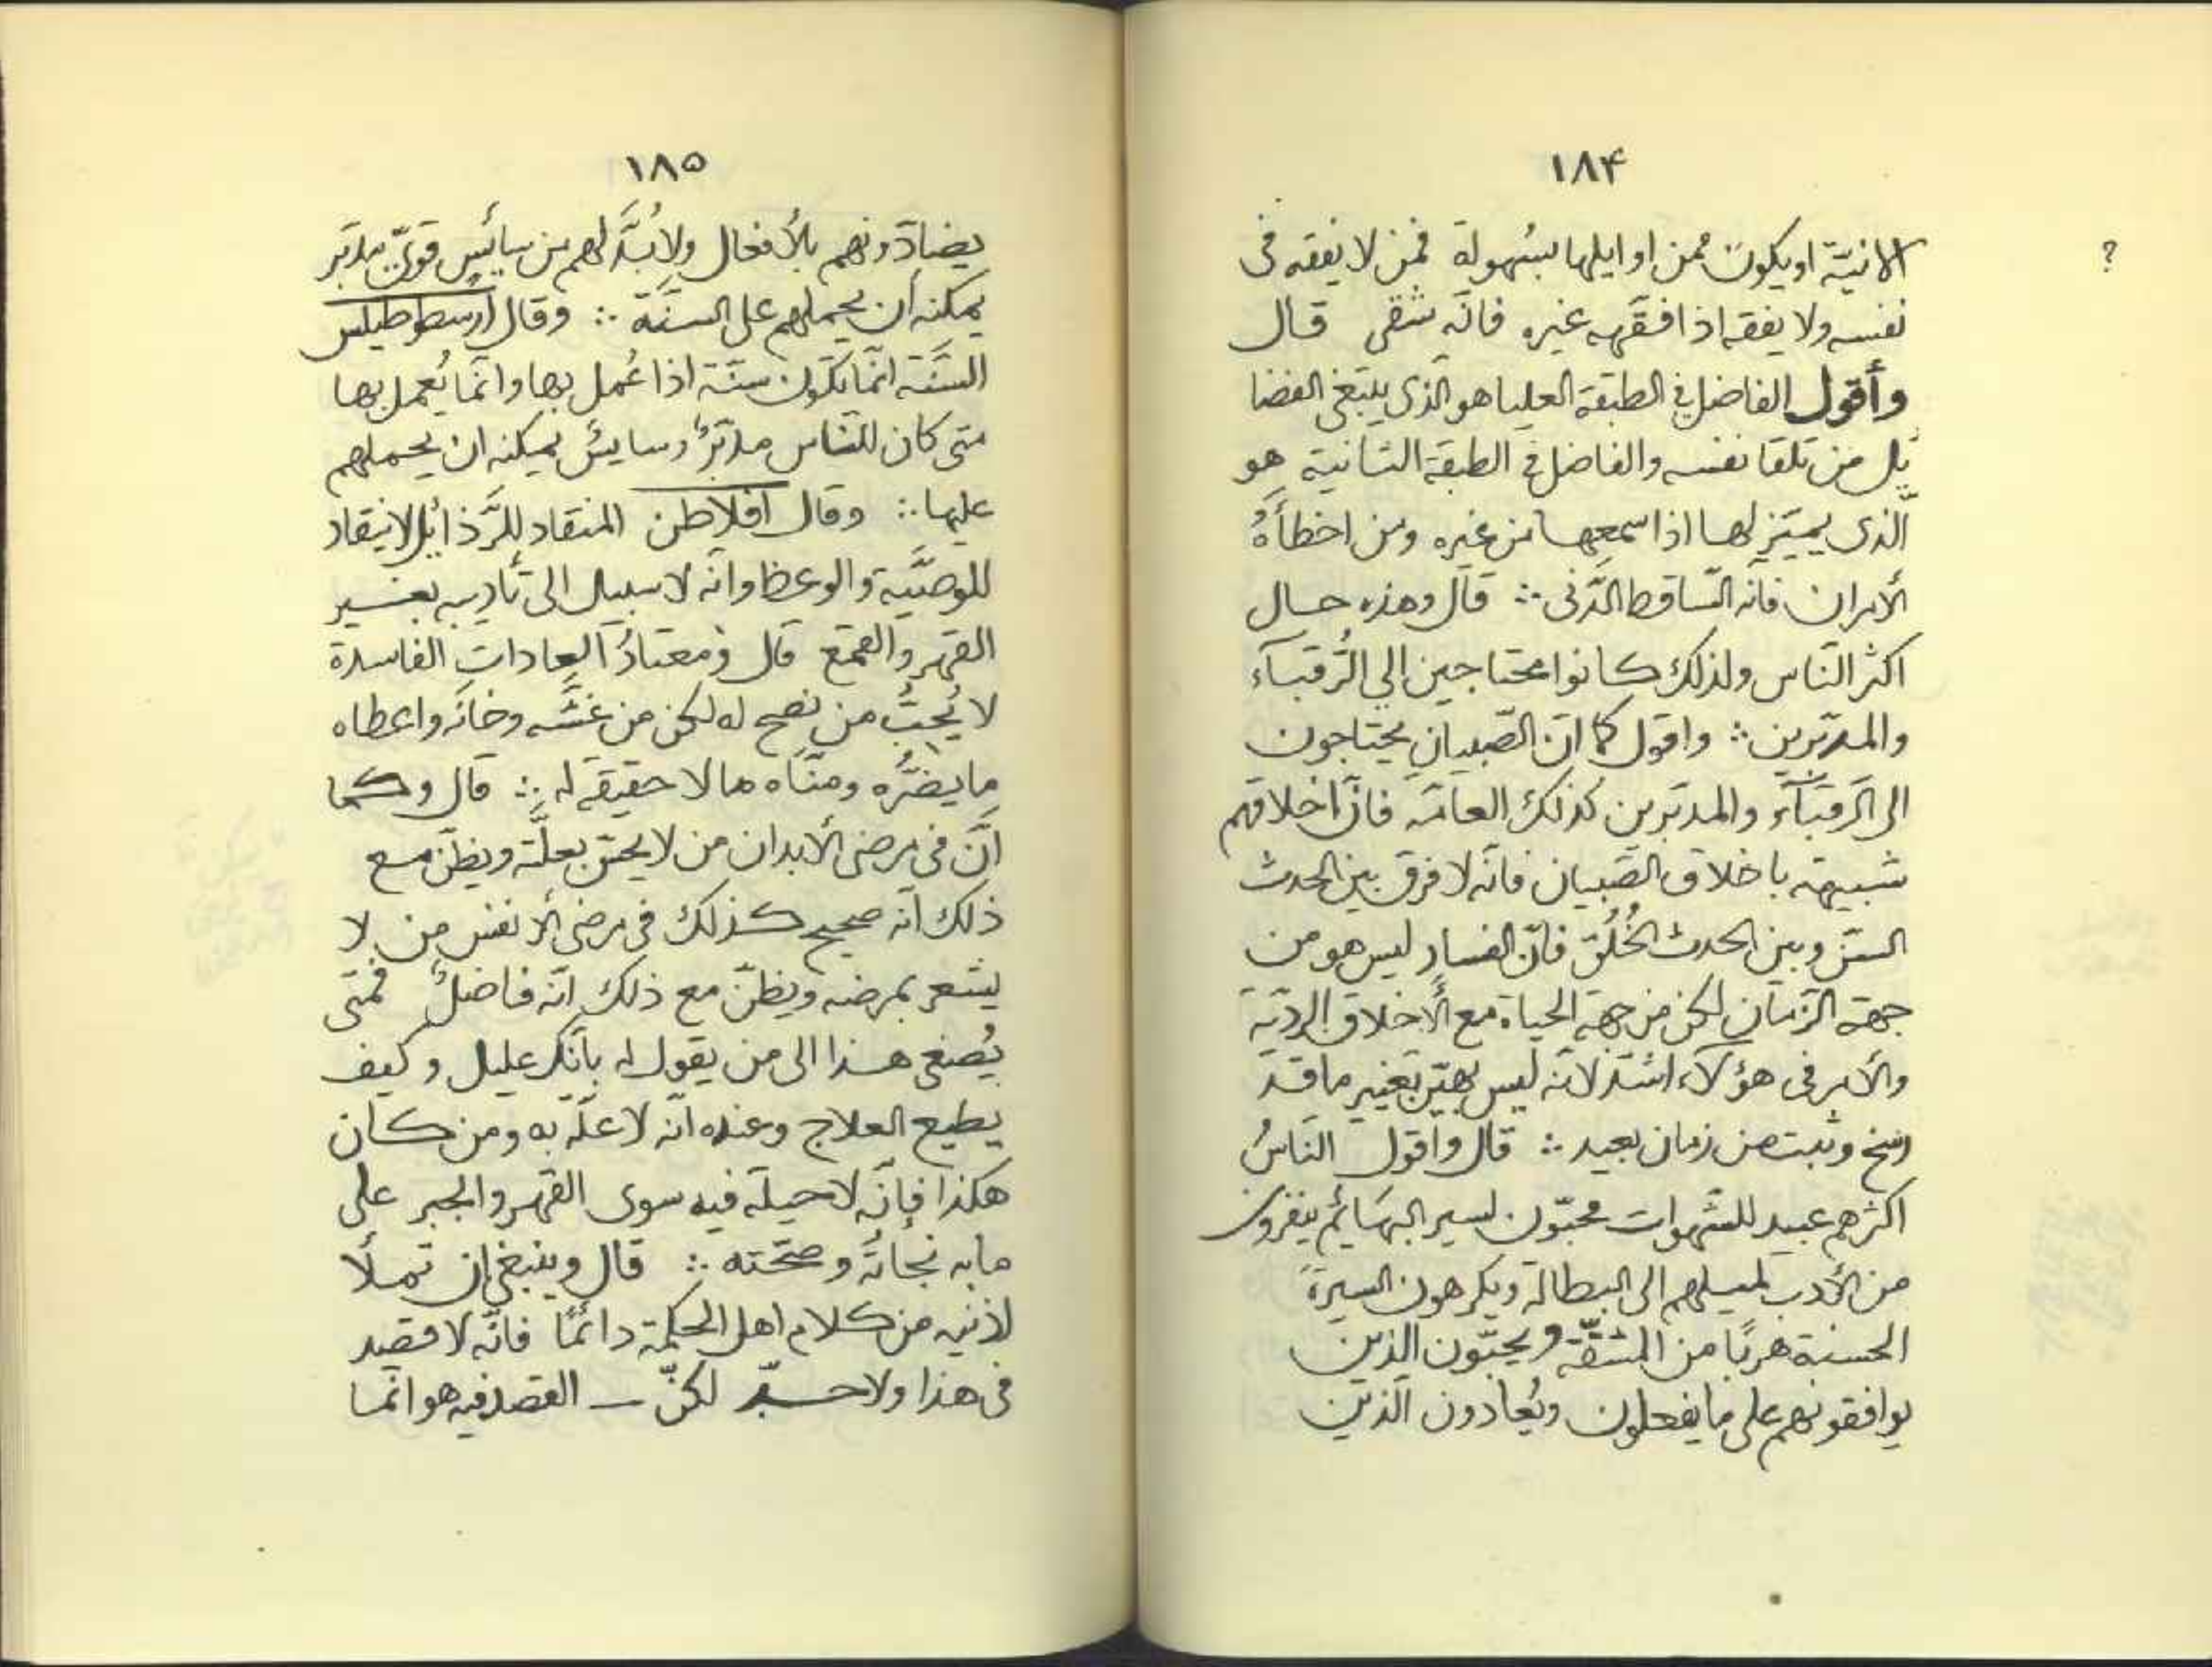 ١٨۴
؟
الانيّة او يكون ممن اوايلها بسُهولة فمن لا يفقه فى
نفسه ولا يفقه اذا فقّهه غيره فانّه شقى قال
وأقول الفاضل في الطبقة العليا هو الّذى يبتغى الفضا
يل من تلقا نفسه والفاضل في الطبقة الثانية هو
الّذى يميّز لها اذا سمعها من غيره ومن اخطأهُ
الأمران فانّه السّاقط الدّنى ∴ قال وهذه حال
اكثر النّاس ولذلك كانوا محتاجين الي الرُّقبآء
والمدبّرين ∴ واقول كما انّ الصّبيان يحتاجون
الى الرقبآء والمدبّرين كذلك العامّة فانّ اخلاقهم
شبيهة باخلاق الصّبيان فانّه لا فرق بين الحدث
السّن وبين الحدث الخُلُق فانّ الفساد ليس هو من
جهة الزّمان لكن من جهة الحياة مع الأخلاق الرديّة
والأمر فى هؤلآء اشدّ لانّه ليس بهيّن تغيير ما قد
رسخ وثبت من زمان بعيد ∴ قال واقول النّاسُ
اكثرهم عبيد للشّهوات محبّون لسير البهَائم ينفرون
من الأدب لميلهم الى البطالة ويكرهون السيرة
الحسنة هربًا من المشقّة ويحبّون الذين
يوافقونهم على ما يفعلون ويُعادون الّذين
١٨٥
يضادّونهم بالأفعال ولا بُدَّ لهم من سائس قوىّ مدبّر
يمكنه أن يحملهم على السنّة ∴ وقال أرسطوطيلس
السّنّة انّما تكون سنّة اذا عُمل بها وانّما يُعمل بها
متى كان للنّاس مدبّرٌ وسايسٌ يمكنه ان يحملهم
عليها ∴ وقال افلاطن المنقاد للرّذائل لا ينقاد
للوصيّة والوعظ وانّه لا سبيل الى تأديبه بغير
القهر والقمع قال ومعتادُ العادات الفاسدة
لا يُحبُّ من نصح له لكن من غشّه وخانَه واعطاه
ما يضرُّه ومنّاه ما لا حقيقة له ∴ قال وكما
أنّ فى مرضى الأبدان من لا يحسّ بعلّته ويظنّ مع
ذلك انّه صحيح كذلك فى مرضى الأنفس من لا
يشعر بمرضه ويظنّ مع ذلك انّه فاضلٌ فمتى
يُصغى هذا الى من يقول له بأنّك عليل وكيف
يطيع العلاج وعنده انّه لا علّة به ومن كان
هكذا فإنّه لا حيلة فيه سوى القهر والجبر على
ما به نجاتُه وصحّته ∴ قال وينبغي ان تملأ
اذنيه من كلام اهل الحكمة دائمًا فانّه لا قصد
فى هذا ولا حدّ لكنّ القصد فيه هو انّما